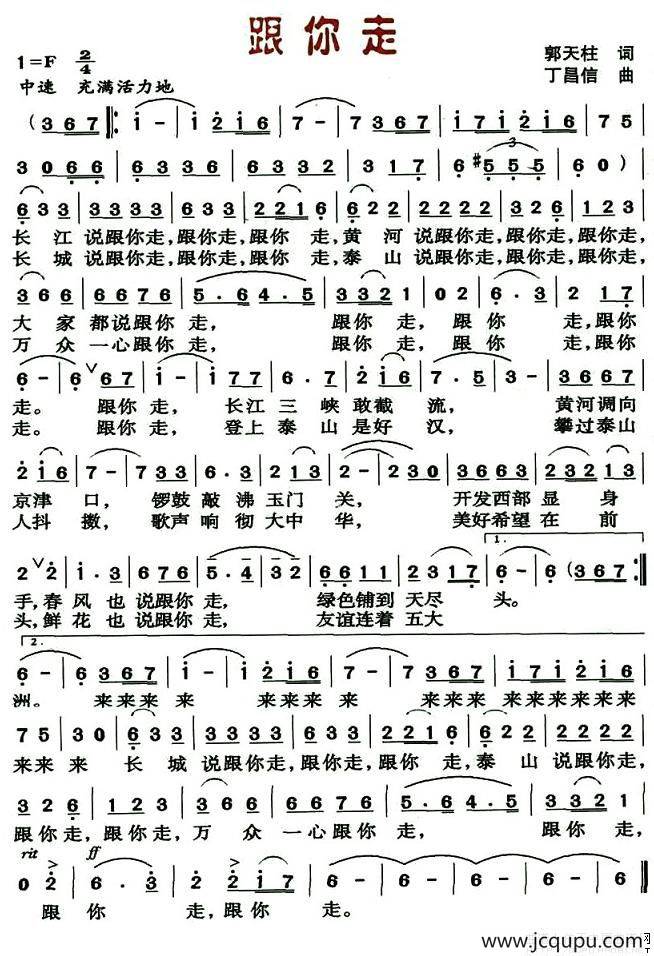 跟你走
1=F 2/4
郭天柱 词
中速 充满活力地
丁昌信 曲
(3 6 7 ‖: i - | i 2 i 6 | 7 - | 7 3 6 7 | i 7 i 2 i 6 | 7 5 |
3 0 6 6 | 6 3 3 6 | 6 3 3 2 | 3 1 7 | 6 #5 5 5 | 6 0 ) |
6 3 3 | 3 3 3 3 | 6 3 3 | 2 2 1 6 | 6 2 2 | 2 2 2 2 | 3 2 6 | 1 2 3 |
长 江 说跟你走,跟你走,跟你 走,黄 河 说跟你走,跟你走,跟你走,
长 城 说跟你走,跟你走,跟你 走,泰 山 说跟你走,跟你走,跟你走,
3 6 6 | 7 6 6 6 | 5 . 6 4 . 5 | 3 3 2 1 | 0 2 | 6 . 3 | 2 | 2 1 7 |
大 家 都说跟你 走, 跟你 走, 跟 你 走,跟你
万 众 一心跟你 走, 跟你 走, 跟 你 走,跟你
6 - | 6 ∨ 6 7 | i - | i 7 7 | 6 . 7 | 2 i 6 | 7 . 5 | 3 - | 3 3 6 7 |
走。 跟你 走, 长江 三 峡 敢截 流, 黄河调向
走。 跟你 走, 登上 泰 山 是好 汉, 攀过泰山
2 i 6 | 7 - | 7 3 3 | 6 . 3 | 2 1 3 | 2 - | 2 3 0 | 3 6 6 3 | 2 3 2 1 3 |
京津 口, 锣鼓 敲 沸 玉门 关, 开发西部 显 身
人抖 擞, 歌声 响 彻 大中 华, 美好希望 在 前
1.
2 ∨ 2 | i . 3 | 6 7 6 | 5 . 4 | 3 2 | 6 6 1 1 | 2 3 1 7 | 6 - | 6 (3 6 7 :‖
手,春 风 也 说跟你 走, 绿色铺到 天尽 头。
头,鲜 花 也 说跟你 走, 友谊连着 五大
2.
6 - | 6 3 6 7 | i - | i 2 i 6 | 7 - | 7 3 6 7 | i 7 i 2 i 6 |
洲。 来来来 来 来来来 来 来来来 来来来来来来
7 5 | 3 0 | 6 3 3 | 3 3 3 3 | 6 3 3 | 2 2 1 6 | 6 2 2 | 2 2 2 2 |
来来 来 长 城 说跟你走,跟你走,跟你 走,泰 山 说跟你走,
3 2 6 | 1 2 3 | 3 6 6 | 7 6 6 6 | 5 . 6 4 . 5 | 3 3 2 1 |
跟你走,跟你走,万 众 一心跟你 走, 跟你 走,
rit ff
0 2 | 6 . 3 | 2 2 i 7 | 6 - | 6 - | 6 - | 6 - ‖
跟 你 走,跟你 走。
www.jcqupu.com